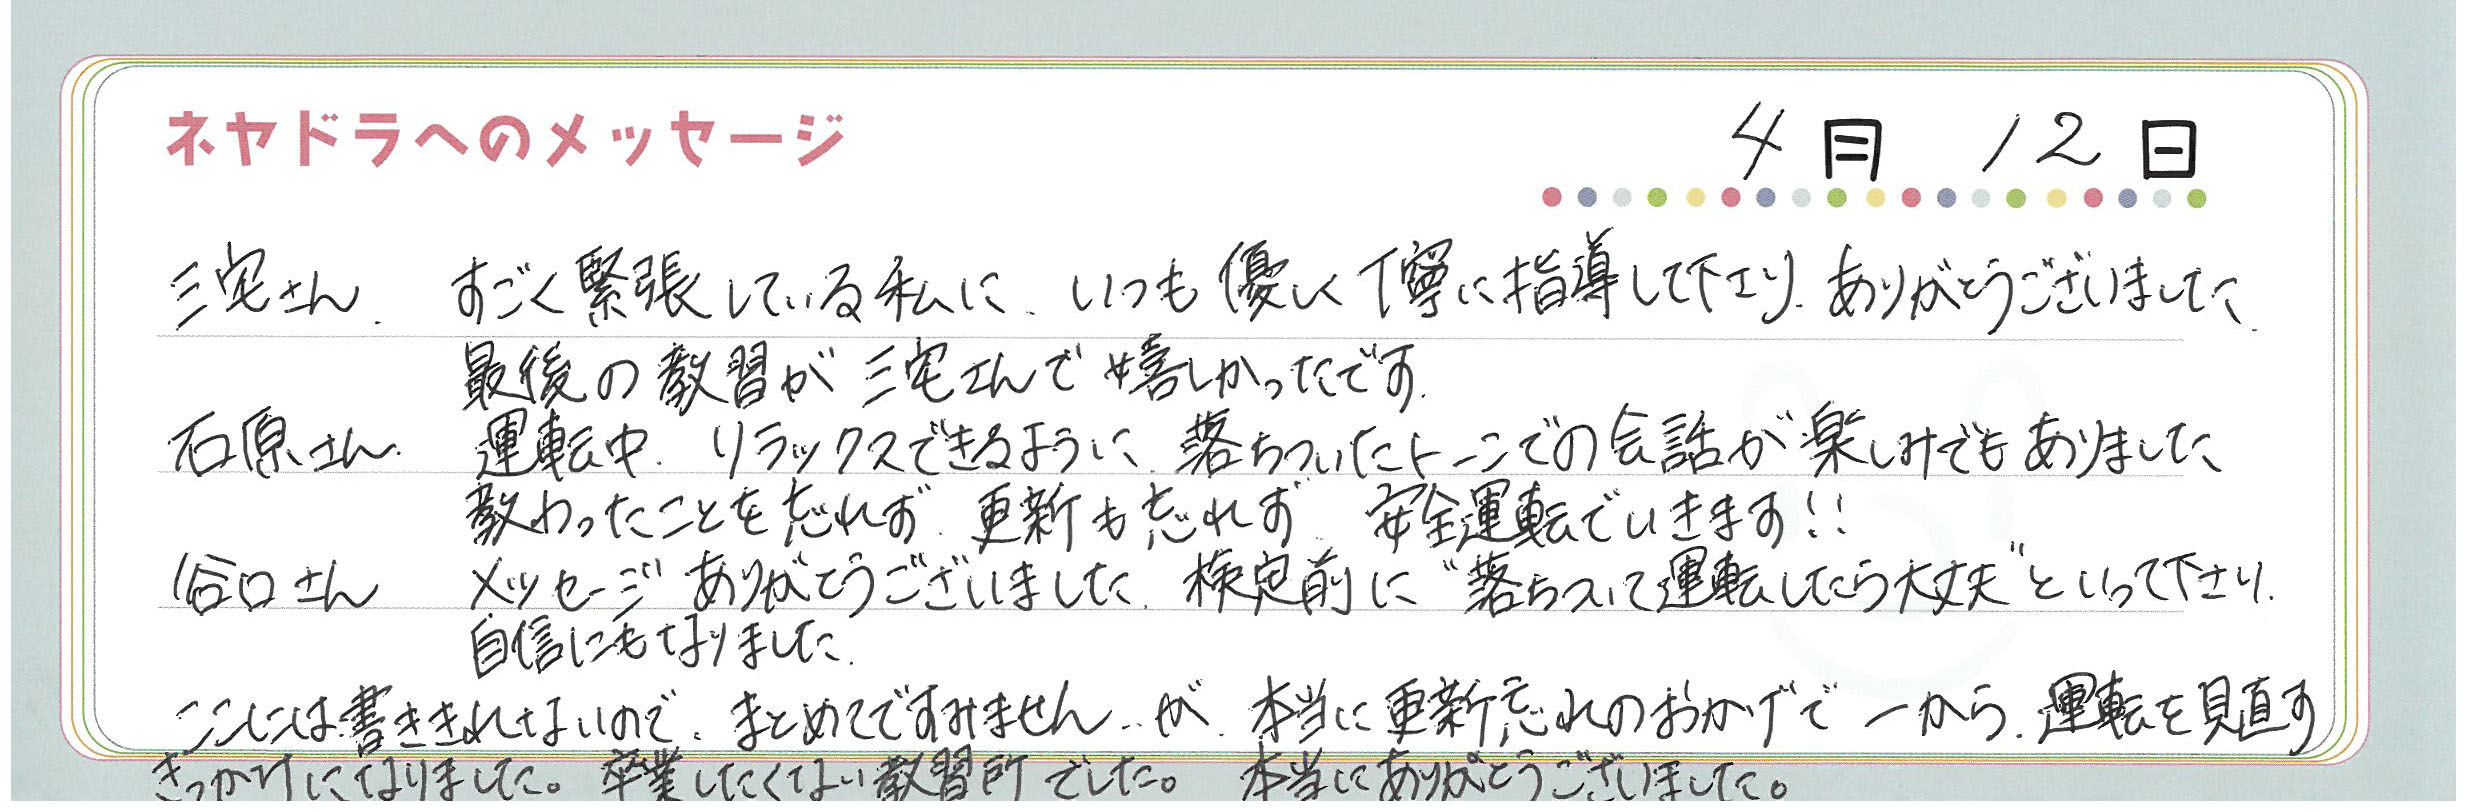 ネヤドラへのメッセージ
4月 12日
三宅さん. すごく緊張している私に、いつも優しく丁寧に指導して下さり、ありがとうございました.
最後の教習が三宅さんで嬉しかったです.
石原さん. 運転中、リラックスできるように、落ちついたトーンでの会話が楽しみでもありました
教わったことを忘れず、更新も忘れず、安全運転でいきます!!
谷口さん メッセージありがとうございました. 検定前に"落ちついて運転したら大丈夫"といって下さり.
自信にもなりました.
ここには書ききれないので、まとめてですみません..が、本当に更新忘れのおかげで一から、運転を見直す
きっかけになりました。卒業したくない教習所でした。 本当にありがとうございました。